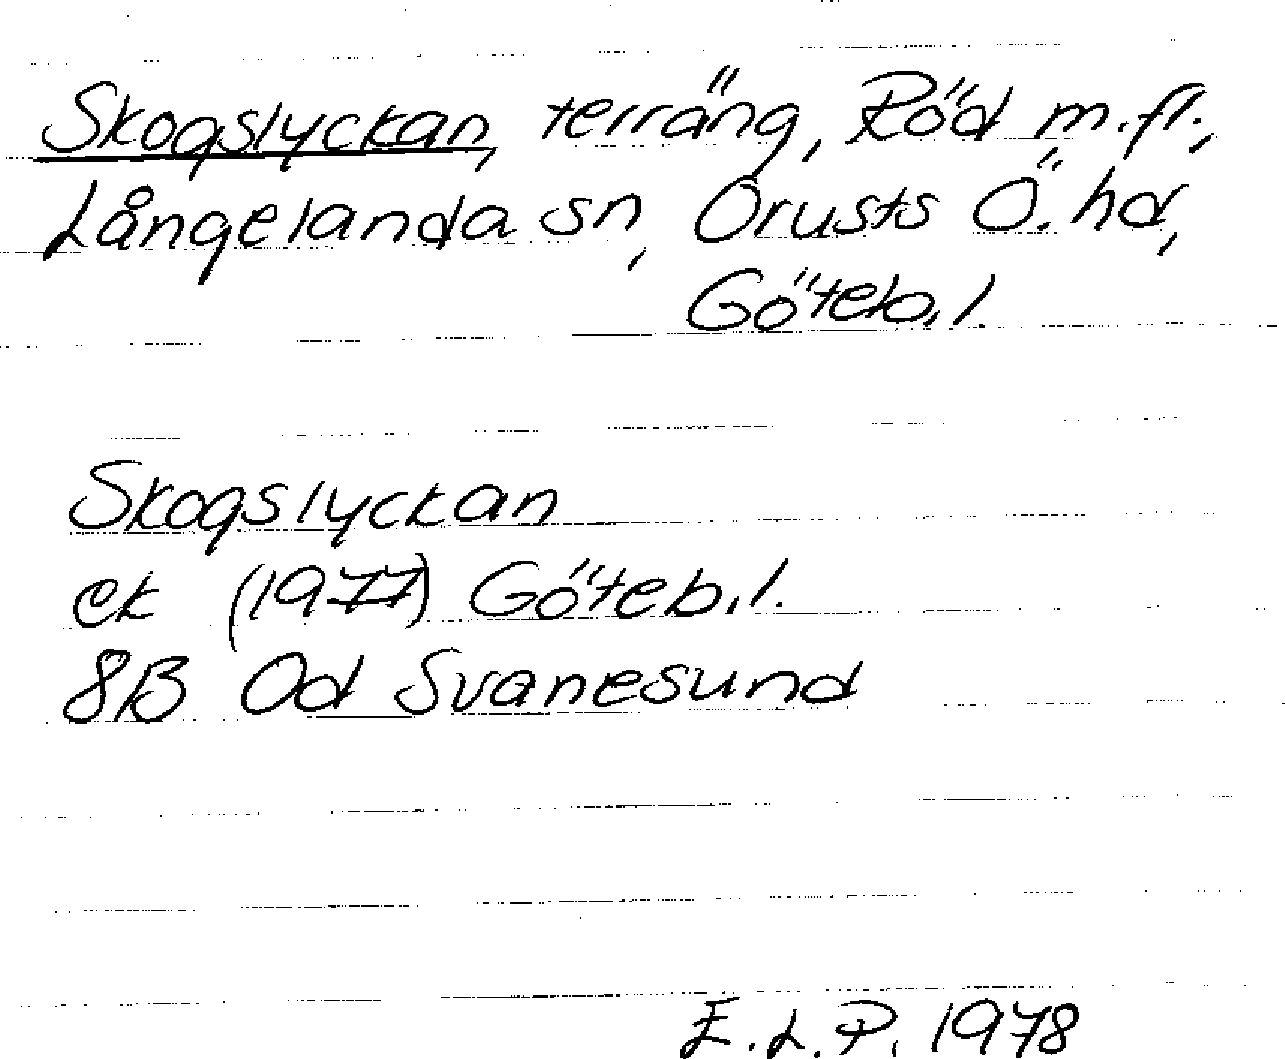 Skogslyckan, terräng, Röd m.fl.,
Långelanda sn, Orusts Ö. hd,
Göteb.l.
Skogslyckan
ek (1977) Göteb.l.
8B 0d Svanesund
E.L.P. 1978